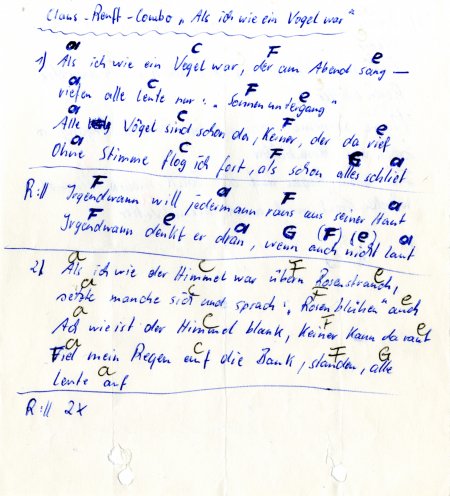 Claus-Renft-Combo „Als ich wie ein Vogel war"
a C F e
1) Als ich wie ein Vogel war, der am Abend sang —
a C F e
riefen alle Leute nur: „Sonnenuntergang"
a C F e
Alle Vögel sind schon da, keiner, der da rief
a C F G a
Ohne Stimme flog ich fort, als schon alles schlief
F a F a
R:|| Irgendwann will jedermann raus aus seiner Haut
F e G (F) (e) a
Irgendwann denkt er dran, wenn auch nicht laut
a C F e
2) Als ich wie der Himmel war übern Rosenstrauch,
a C F e
setzte manche sich und sprach: „Rosen blühen" auch
a C F e
Ach wie ist der Himmel blank, keiner kann da rauf
a C F G
Fiel mein Regen auf die Bank, standen, alle
a
Leute auf
R:|| 2x